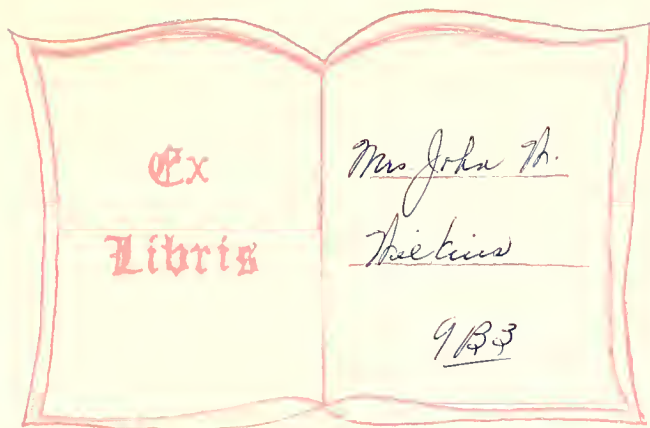 Ex
Libris
Mrs John M.
Wilkins
9B3